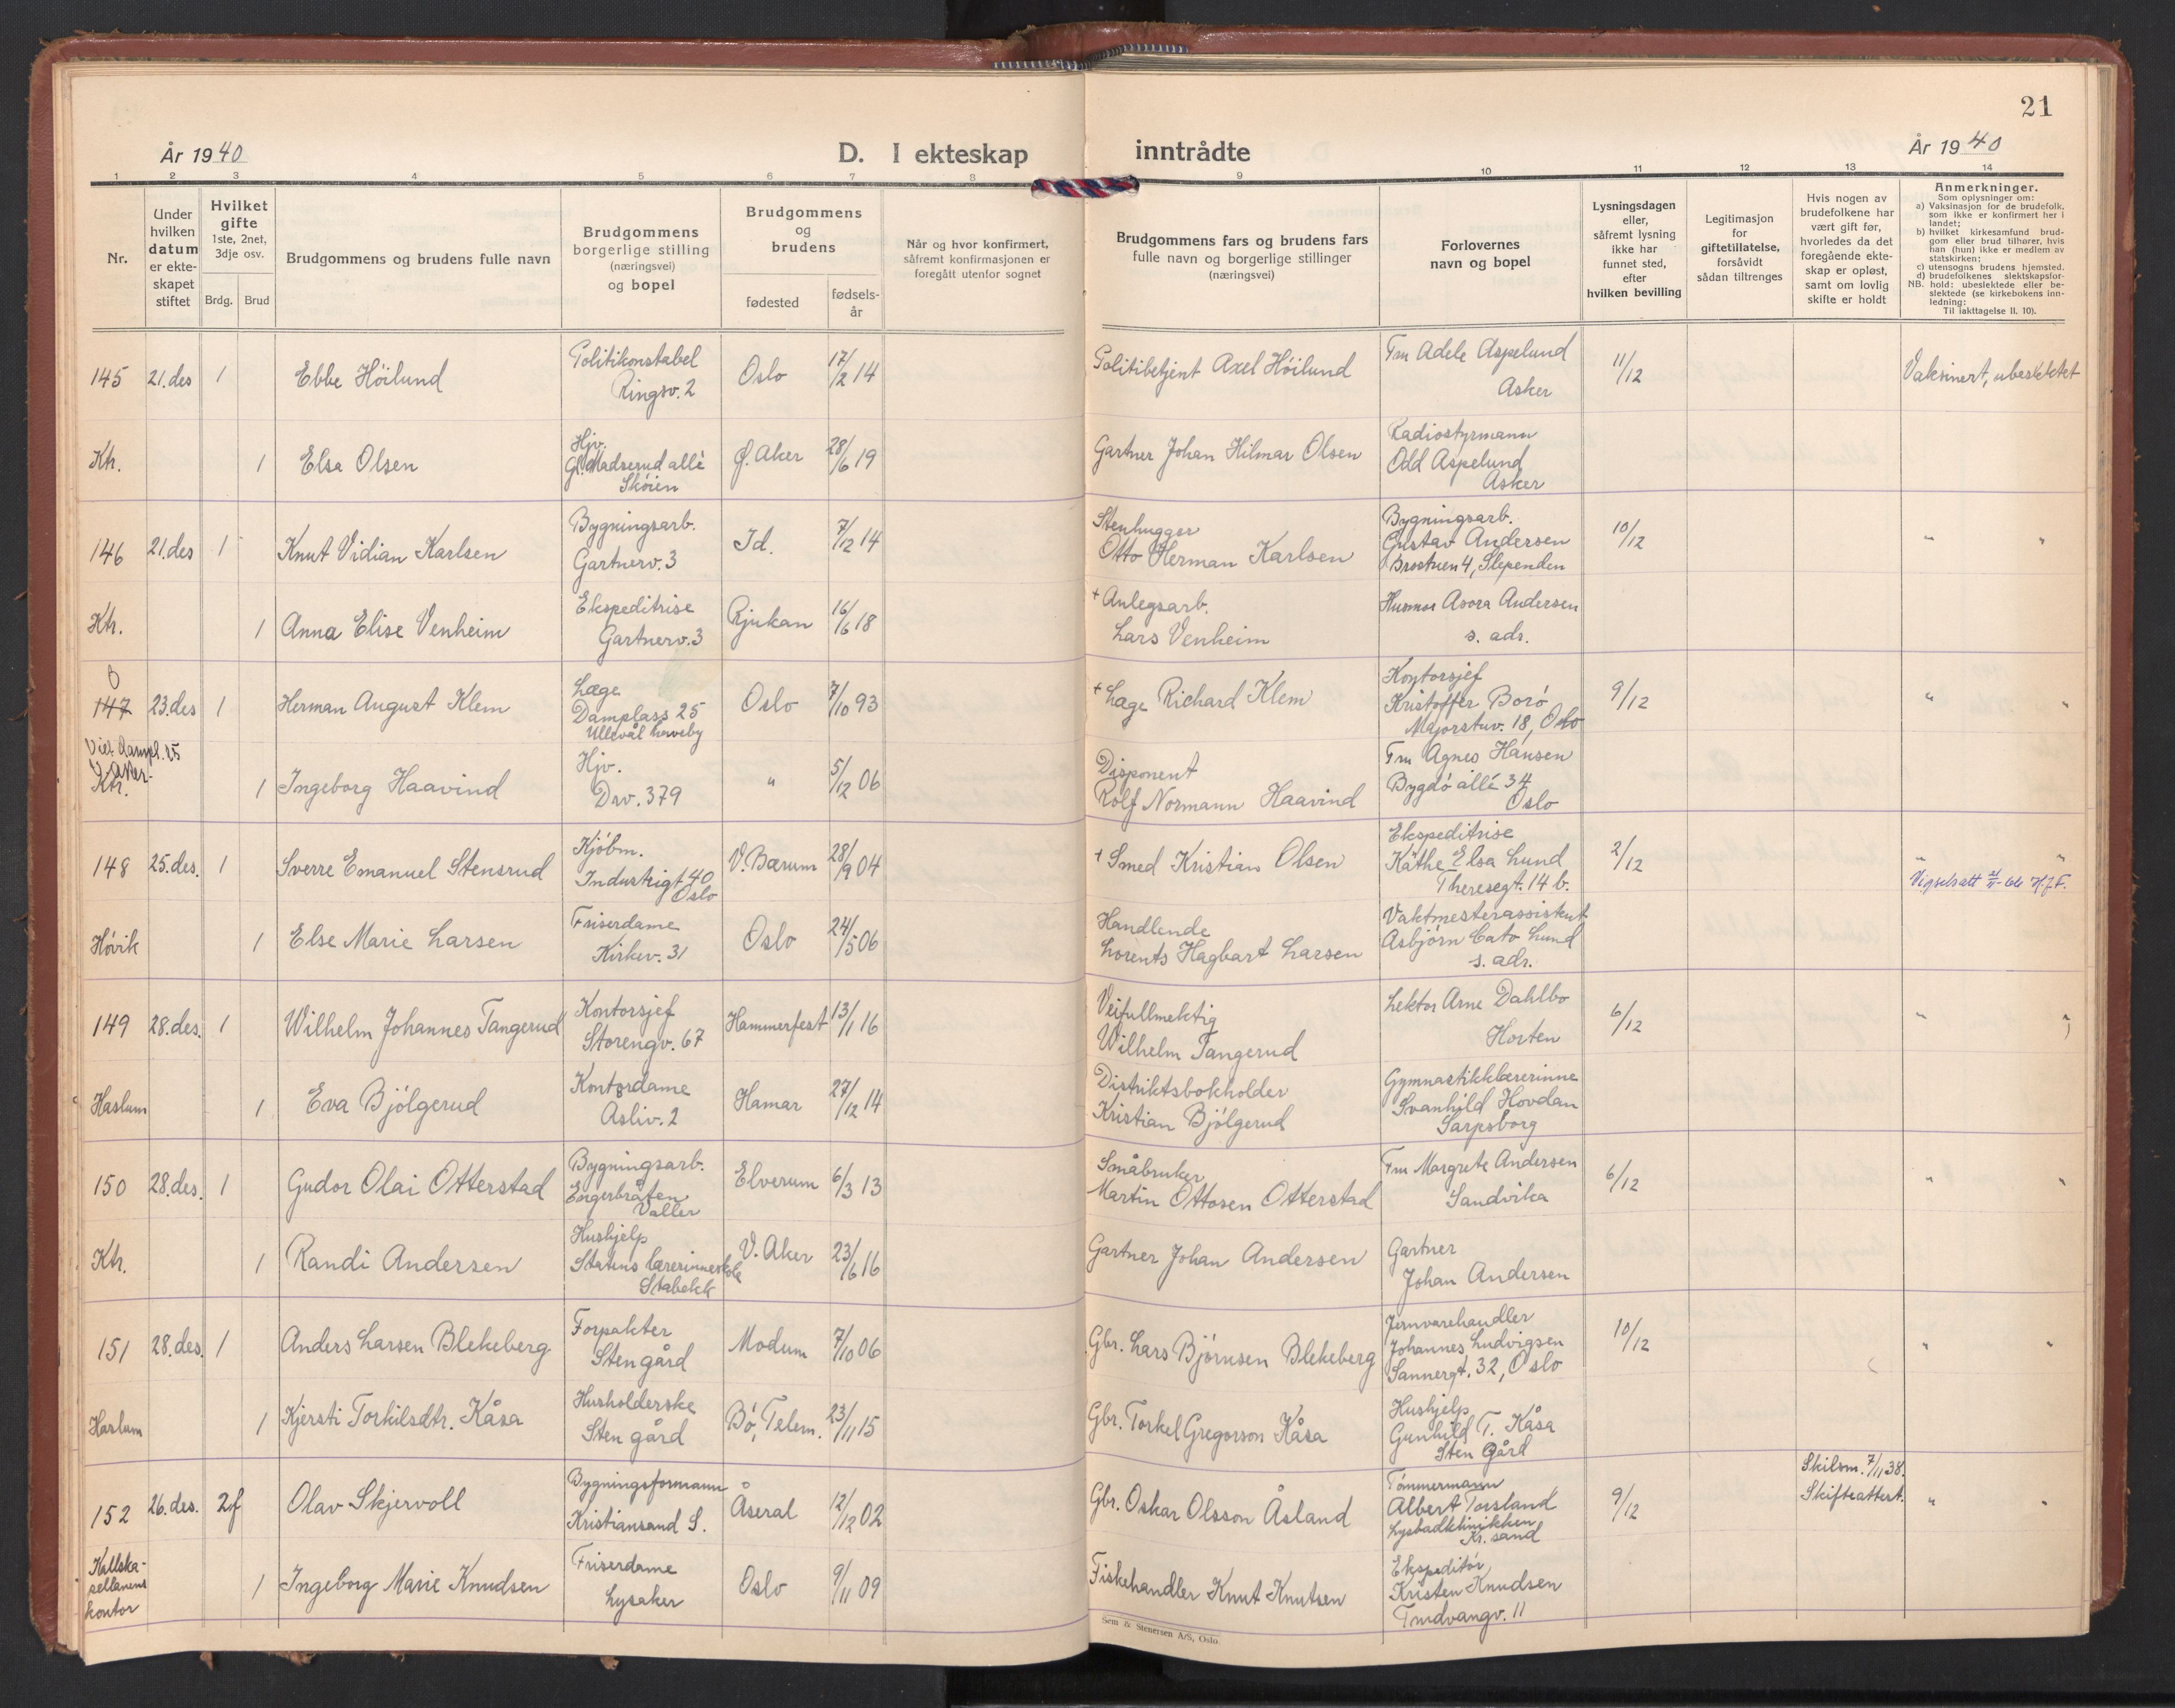 21
År 1940
D. I ekteskap inntrådte
År 1940
1 2 3 4 5 6 7 8 9 10 11 12 13 14
Nr.
Under hvilken datum er ekteskapet stiftet
Hvilket gifte 1ste, 2net, 3dje osv.
Brdg. Brud
Brudgommens og brudens fulle navn
Brudgommens borgerlige stilling (næringsvei) og bopel
Brudgommens og brudens
fødested
fødsels-år
Når og hvor konfirmert, såfremt konfirmasjonen er foregått utenfor sognet
Brudgommens fars og brudens fars fulle navn og borgerlige stillinger (næringsvei)
Forlovernes navn og bopel
Lysningsdagen eller, såfremt lysning ikke har funnet sted, efter hvilken bevilling
Legitimasjon for giftetillatelse, forsåvidt sådan tiltrenges
Hvis nogen av brudefolkene har vært gift før, hvorledes da det foregående ekteskap er opløst, samt om lovlig skifte er holdt
Anmerkninger.
Som oplysninger om:
a) Vaksinasjon for de brudefolk, som ikke er konfirmert her i landet;
b) hvilket kirkesamfund brudgom eller brud tilhører, hvis han (hun) ikke er medlem av statskirken;
c) utensogns brudens hjemsted.
d) brudefolkenes slektskapsforhold: ubeslektede eller beslektede (se kirkebokens innledning:
NB. Til iakttagelse II. 10).
145 21.des 1 Ebbe Höilund Politikonstabel Ringsv. 2 Oslo 17/2 14 Politibetjent Axel Höilund Fru Adele Aspelund Asker 11/12 Vaksinert, ubeslektet
Ktr. 1 Elsa Olsen Hjv. Gl. Madserud allé Skøien Ø. Aker 28/6 19 Gartner Johan Hilmar Olsen Radiostyrmann Odd Aspelund Asker
146 21.des 1 Knut Vidian Karlsen Bygningsarb. Gartnerv. 3 Id. 7/12 14 Stenhugger Otto Herman Karlsen Bygningsarb. Gustav Andersen 4, Slependen 10/12 " "
Ktr. 1 Anna Elise Venheim Ekspeditrise Gartnerv. 3 Rjukan 16/6 18 + Anlegsarb. Lars Venheim Husmor Asora Andersen s. adr.
147 23.des 1 Herman August Klem Læge Damplass 25 Ullevål haveby Oslo 7/10 93 + Læge Richard Klem Kontorsjef Kristoffer Borö Majorstuv. 18, Oslo 9/12 " "
V. Aker. Ktr. 1 Ingeborg Haavind Hjv. Drv. 379 " 5/12 06 Disponent Rolf Normann Haavind Fru Agnes Hansen Bygdö allé 34 Oslo
148 25.des. 1 Sverre Emanuel Stensrud Kjöbm. Industrigt 40 Oslo V. Bærum 28/9 04 + Smed Kristian Olsen Ekspeditrise Käthe Elsa Lund Theresegt. 14 b. 2/12 " " Vigselsatt H.J.F.
Hövik 1 Else Marie Larsen Friserdame Kirkev. 31 Oslo 24/5 06 Handlende Lorents Hagbart Larsen Vaktmesterassistent Asbjörn Cato Lund s. adr.
149 28.des. 1 Wilhelm Johannes Tangerud Kontorsjef Storengv. 67 Hammerfest 13/1 16 Veifullmektig Wilhelm Tangerud Lektor Arne Dahlbo Horten 6/12 " "
Haslum 1 Eva Bjölgerud Kontordame Asliv. 2 Hamar 27/12 14 Distriktsbokholder Kristian Bjölgerud Gymnastikklærerinne Svanhild Hovdan Sarpsborg
150 28.des. 1 Gudor Olai Otterstad Bygningsarb. Engerbråten Valler Elverum 6/3 13 Småbruker Martin Ottosen Otterstad Fru Margrete Andersen Sandvika 6/12 " "
Ktr. 1 Randi Andersen Hushjelp Statens lærerinneskole Stabekk V. Aker 23/6 16 Gartner Johan Andersen Gartner Johan Andersen
151 28.des. 1 Anders Larsen Blekeberg Forpakter Sten gård Modum 7/10 06 Gbr. Lars Björnsen Blekeberg Jernvarehandler Johannes Ludvigsen Sannergt. 32, Oslo 10/12 " "
Haslum 1 Kjersti Torkilsdtr. Kåsa Husholderske Sten gård Bö, Telem. 23/11 15 Gbr. Torkel Gregorson Kåsa Hushjelp Gunhild T. Kåsa Sten Gård
152 26.des. 2f Olav Skjervoll Bygningsformann Kristiansand S. Åseral 12/12 02 Gbr. Oskar Olsson Åsland Tömmermann Albert Torsland Lysbadklinikken Kr. sand 9/12 Skilsm. 7/11 38. Skifteattest. " "
kontor 1 Ingeborg Marie Knudsen Friserdame Lysaker Oslo 9/11 09 Fiskehandler Knut Knutsen Ekspeditör Kristen Knudsen Trudvangv. 11
Sem & Stenersen A/S, Oslo